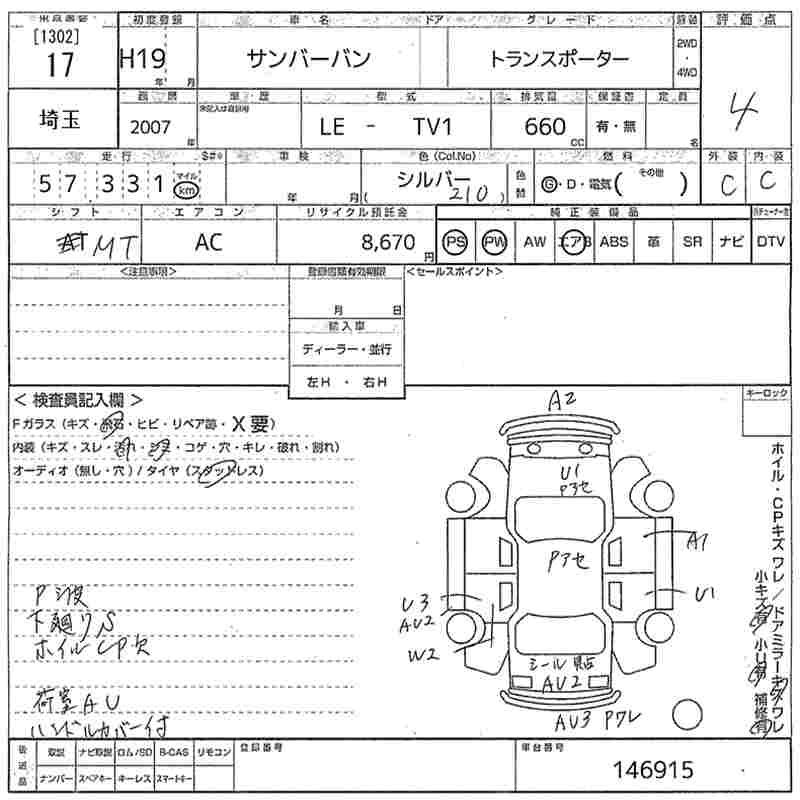 [1302] 初度登録 車名 ドア グレード 評価点
17 H19 年 月 サンバーバン トランスポーター 2WD・4WD 4
埼玉 車歴 型式 排気量 保証書 定員
2007 年 LE - TV1 660 CC 有・無 名
走行 車検 色(Col.No) 燃料 外装 内装
57,331 マイル km 年 月 シルバー 210 色替 G・D・電気( その他 ) C C
シフト エアコン リサイクル預託金 純正装備品
MT AC 8,670 円 PS PW AW エアB ABS 革 SR ナビ DTV
<注意事項> 登録書類有効期限 <セールスポイント>
月 日
輸入車
ディーラー・並行
左H ・ 右H
< 検査員記入欄 > キーロック
Fガラス (キズ・飛石・ヒビ・リペア跡・X要)
内装 (キズ・スレ・汚れ・コゲ・穴・キレ・破れ・割れ)
オーディオ (無し・穴) / タイヤ (スタッドレス)
A2
U1
Pアセ
Pアセ
A1
U1
U3
AU2
W2
シール
AU2
AU3 Pワレ
ホイル・CPキズ ワレ / ドアミラーキズワレ
小キズ有 小U有 補修有
下廻りS
ホイルCP欠
荷室AU
ハンドルカバー付
後送品 取説 ナビ取説 ロム/SD B-CAS リモコン 登録番号 車台番号
ナンバー スペアキー キーレス スマートキー 146915